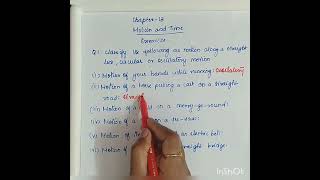 Chapter-13
Motion and Time
Exercises
Q1. Classify the following as motion along a straight
line, circular or oscillatory motion
(i) Motion of your hands while running: Oscillatory
(ii) Motion of a horse pulling a cart on a straight
road:
(iii) Motion of a on a merry-go-round:
(iv) Motion of a on a see-saw:
(v) Motion of electric bell:
straight bridge.
InShOt